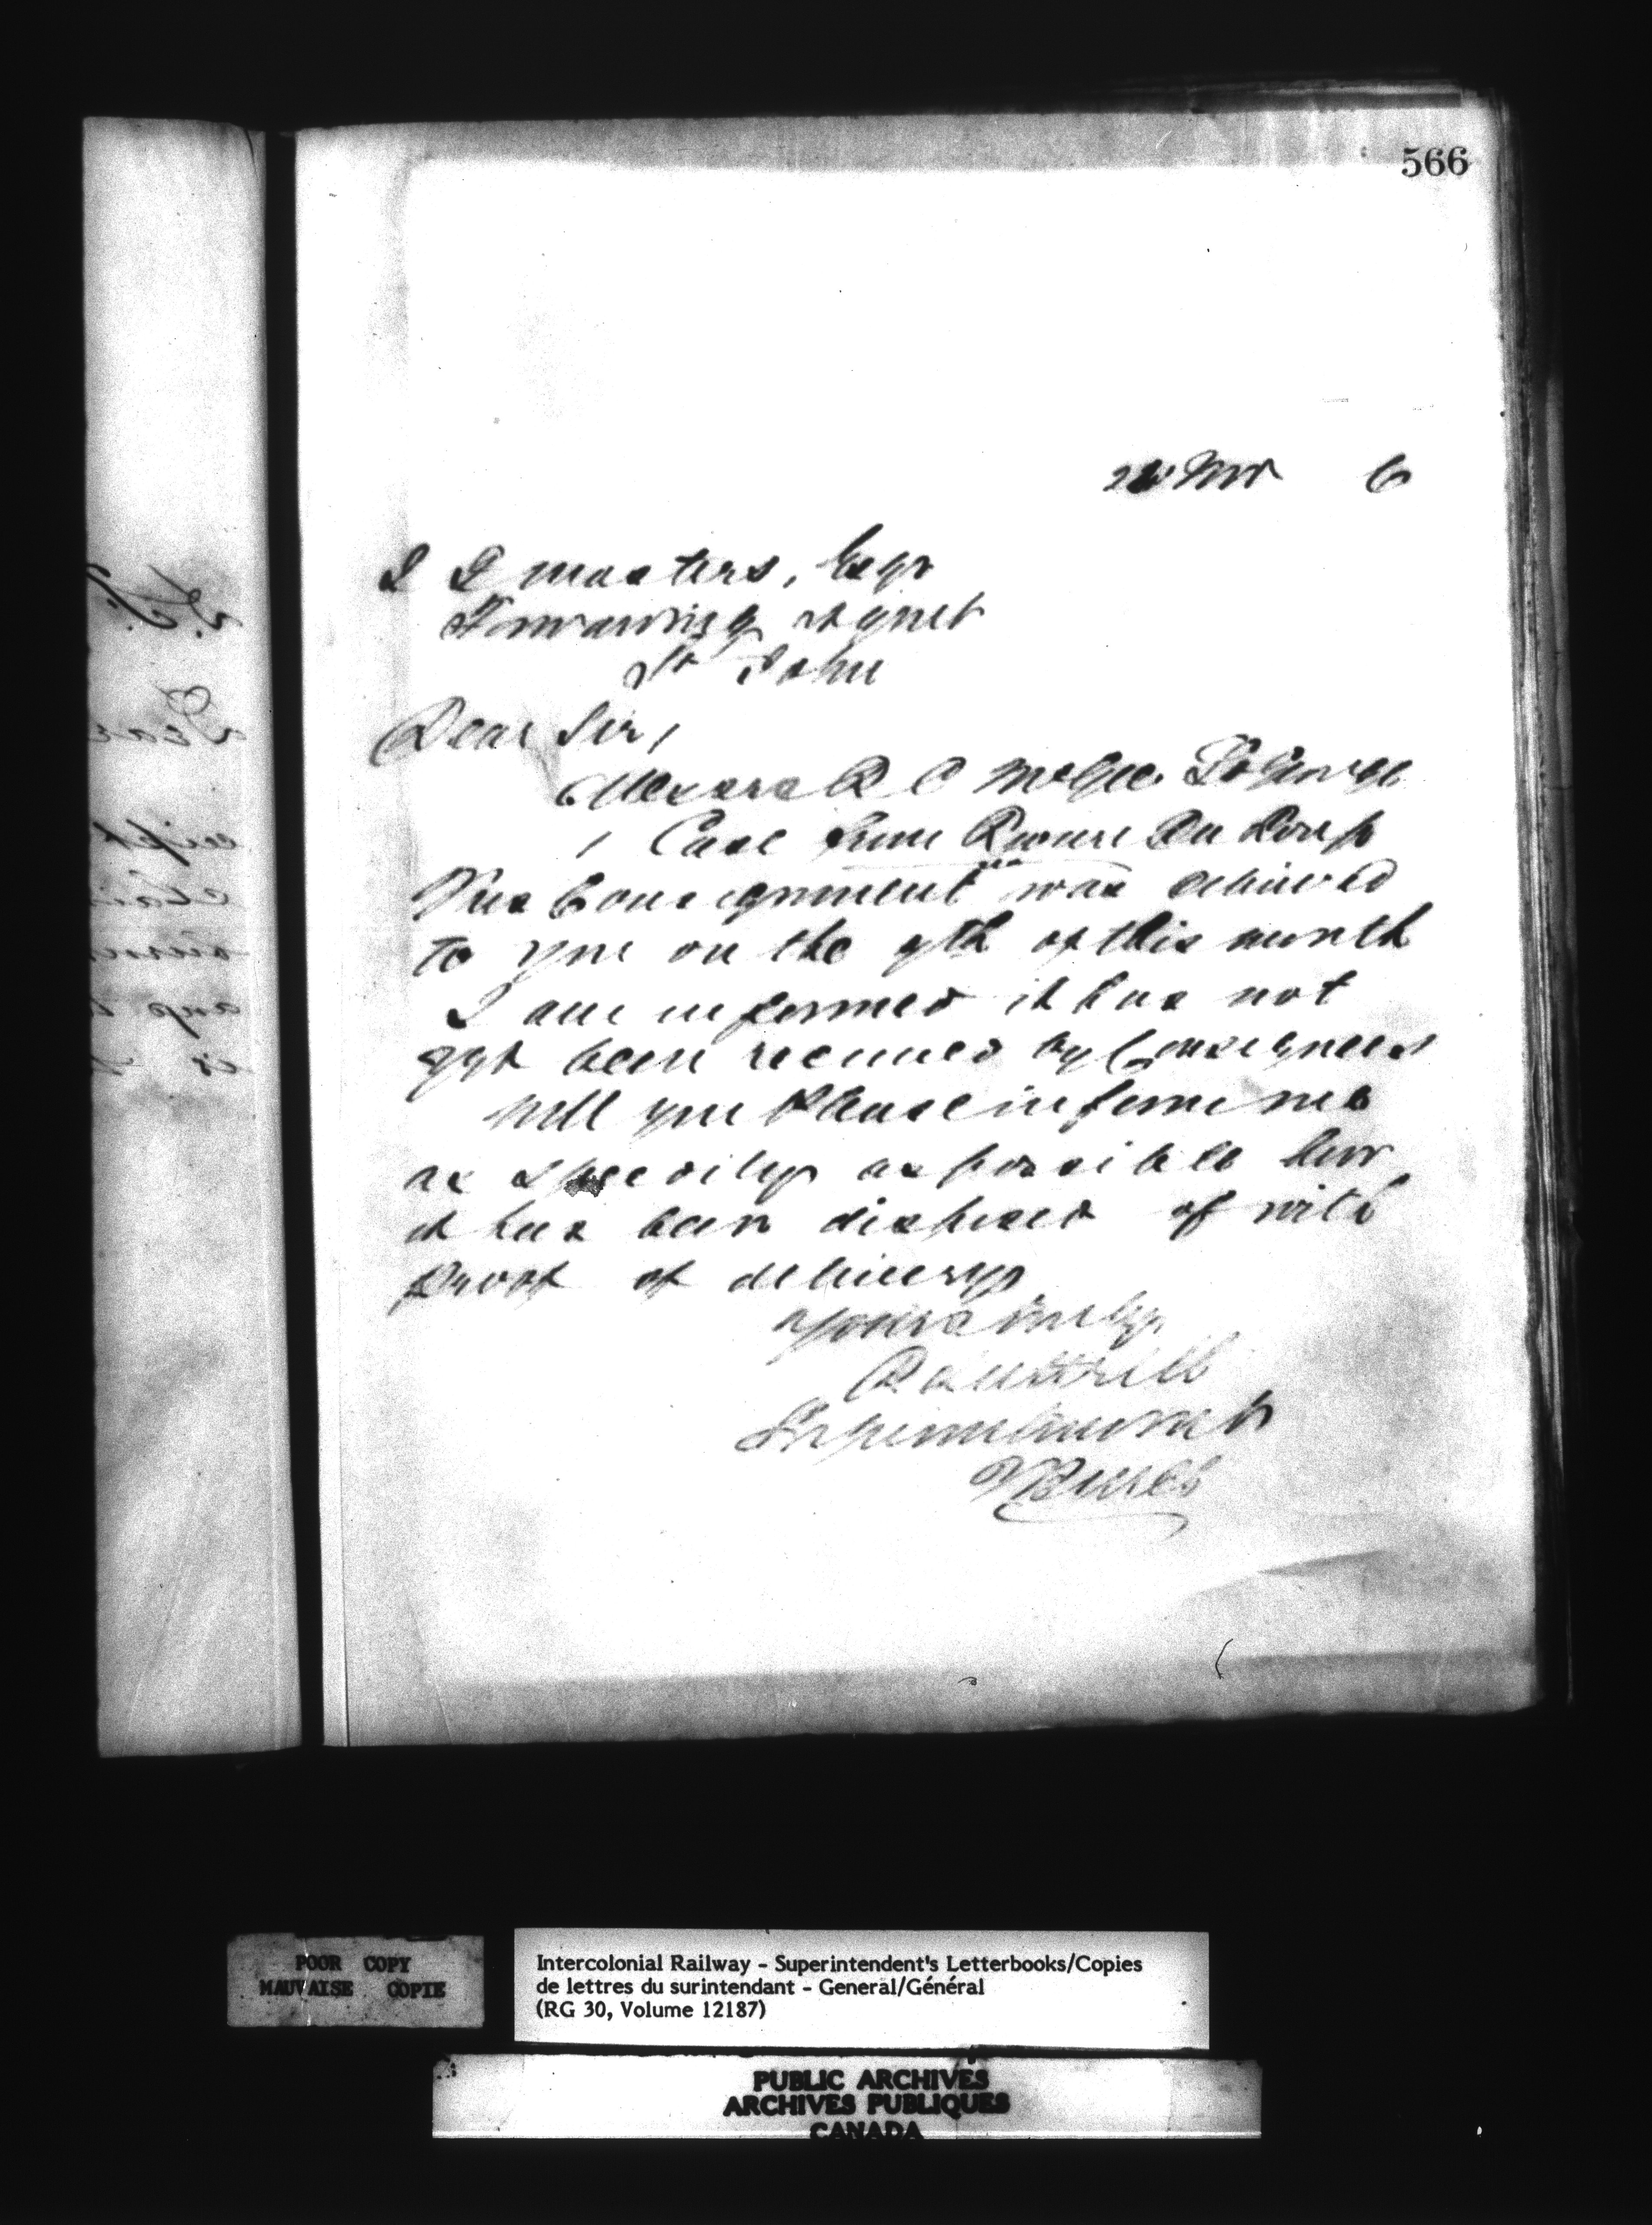 566
Nov 6
J J Masters, Esqr
Forwarding Agnet
St John
Dear Sir,
Messrs R C McGee St George
1 Case from Riviere Du Loup
This Consignment was delivered
to you on the 9th of this month
I am informed it has not
yet been received by Consignees
Will you Please inform me
as speedily as possible how
it has been disposed of with
Proof of delivery
Yours truly
Superintendent
POOR COPY
MAUVAISE COPIE
Intercolonial Railway - Superintendent's Letterbooks/Copies
de lettres du surintendant - General/Général
(RG 30, Volume 12187)
PUBLIC ARCHIVES
ARCHIVES PUBLIQUES
CANADA